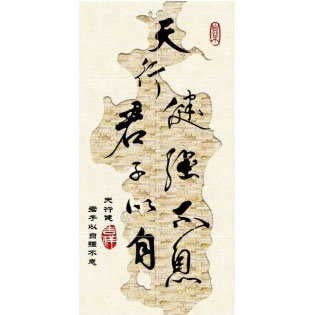 天行健
君子以自强不息
天行健
君子以自强不息
吉祥